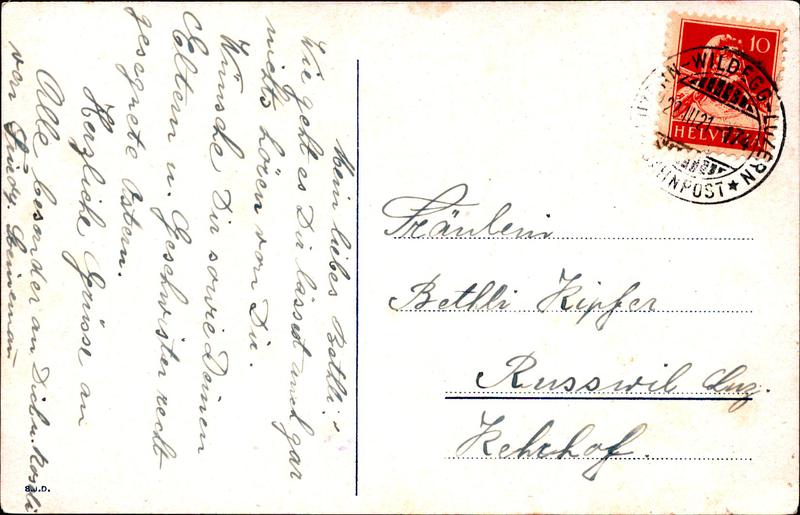 Mein liebes Bethli!
Wie geht es Du lässest mal gar
nichts hören von Dir.
Wünsche Dir sowie Deinen
Eltern u. Geschwister recht
gesegnete Ostern.
Herzliche Grüsse an
Alle besonder an Dich u. Rosli
von
S.J.D.
10
HELVETIA
WILDEGG-LUZERN
BAHNPOST
Fräulein
Bethli Kipfer
Russwil Luz.
Kehrhof.